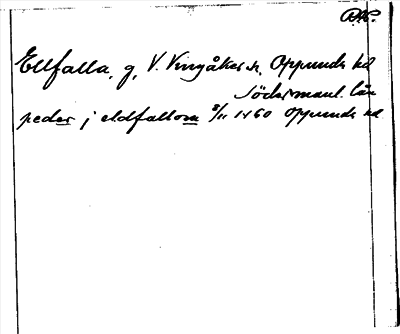 D.N.
Ellfalla, g, V. Vingåkers sn, Oppunda hd
Södermanl. län
peder j eldfallom 8/11 1460 Oppunda hd